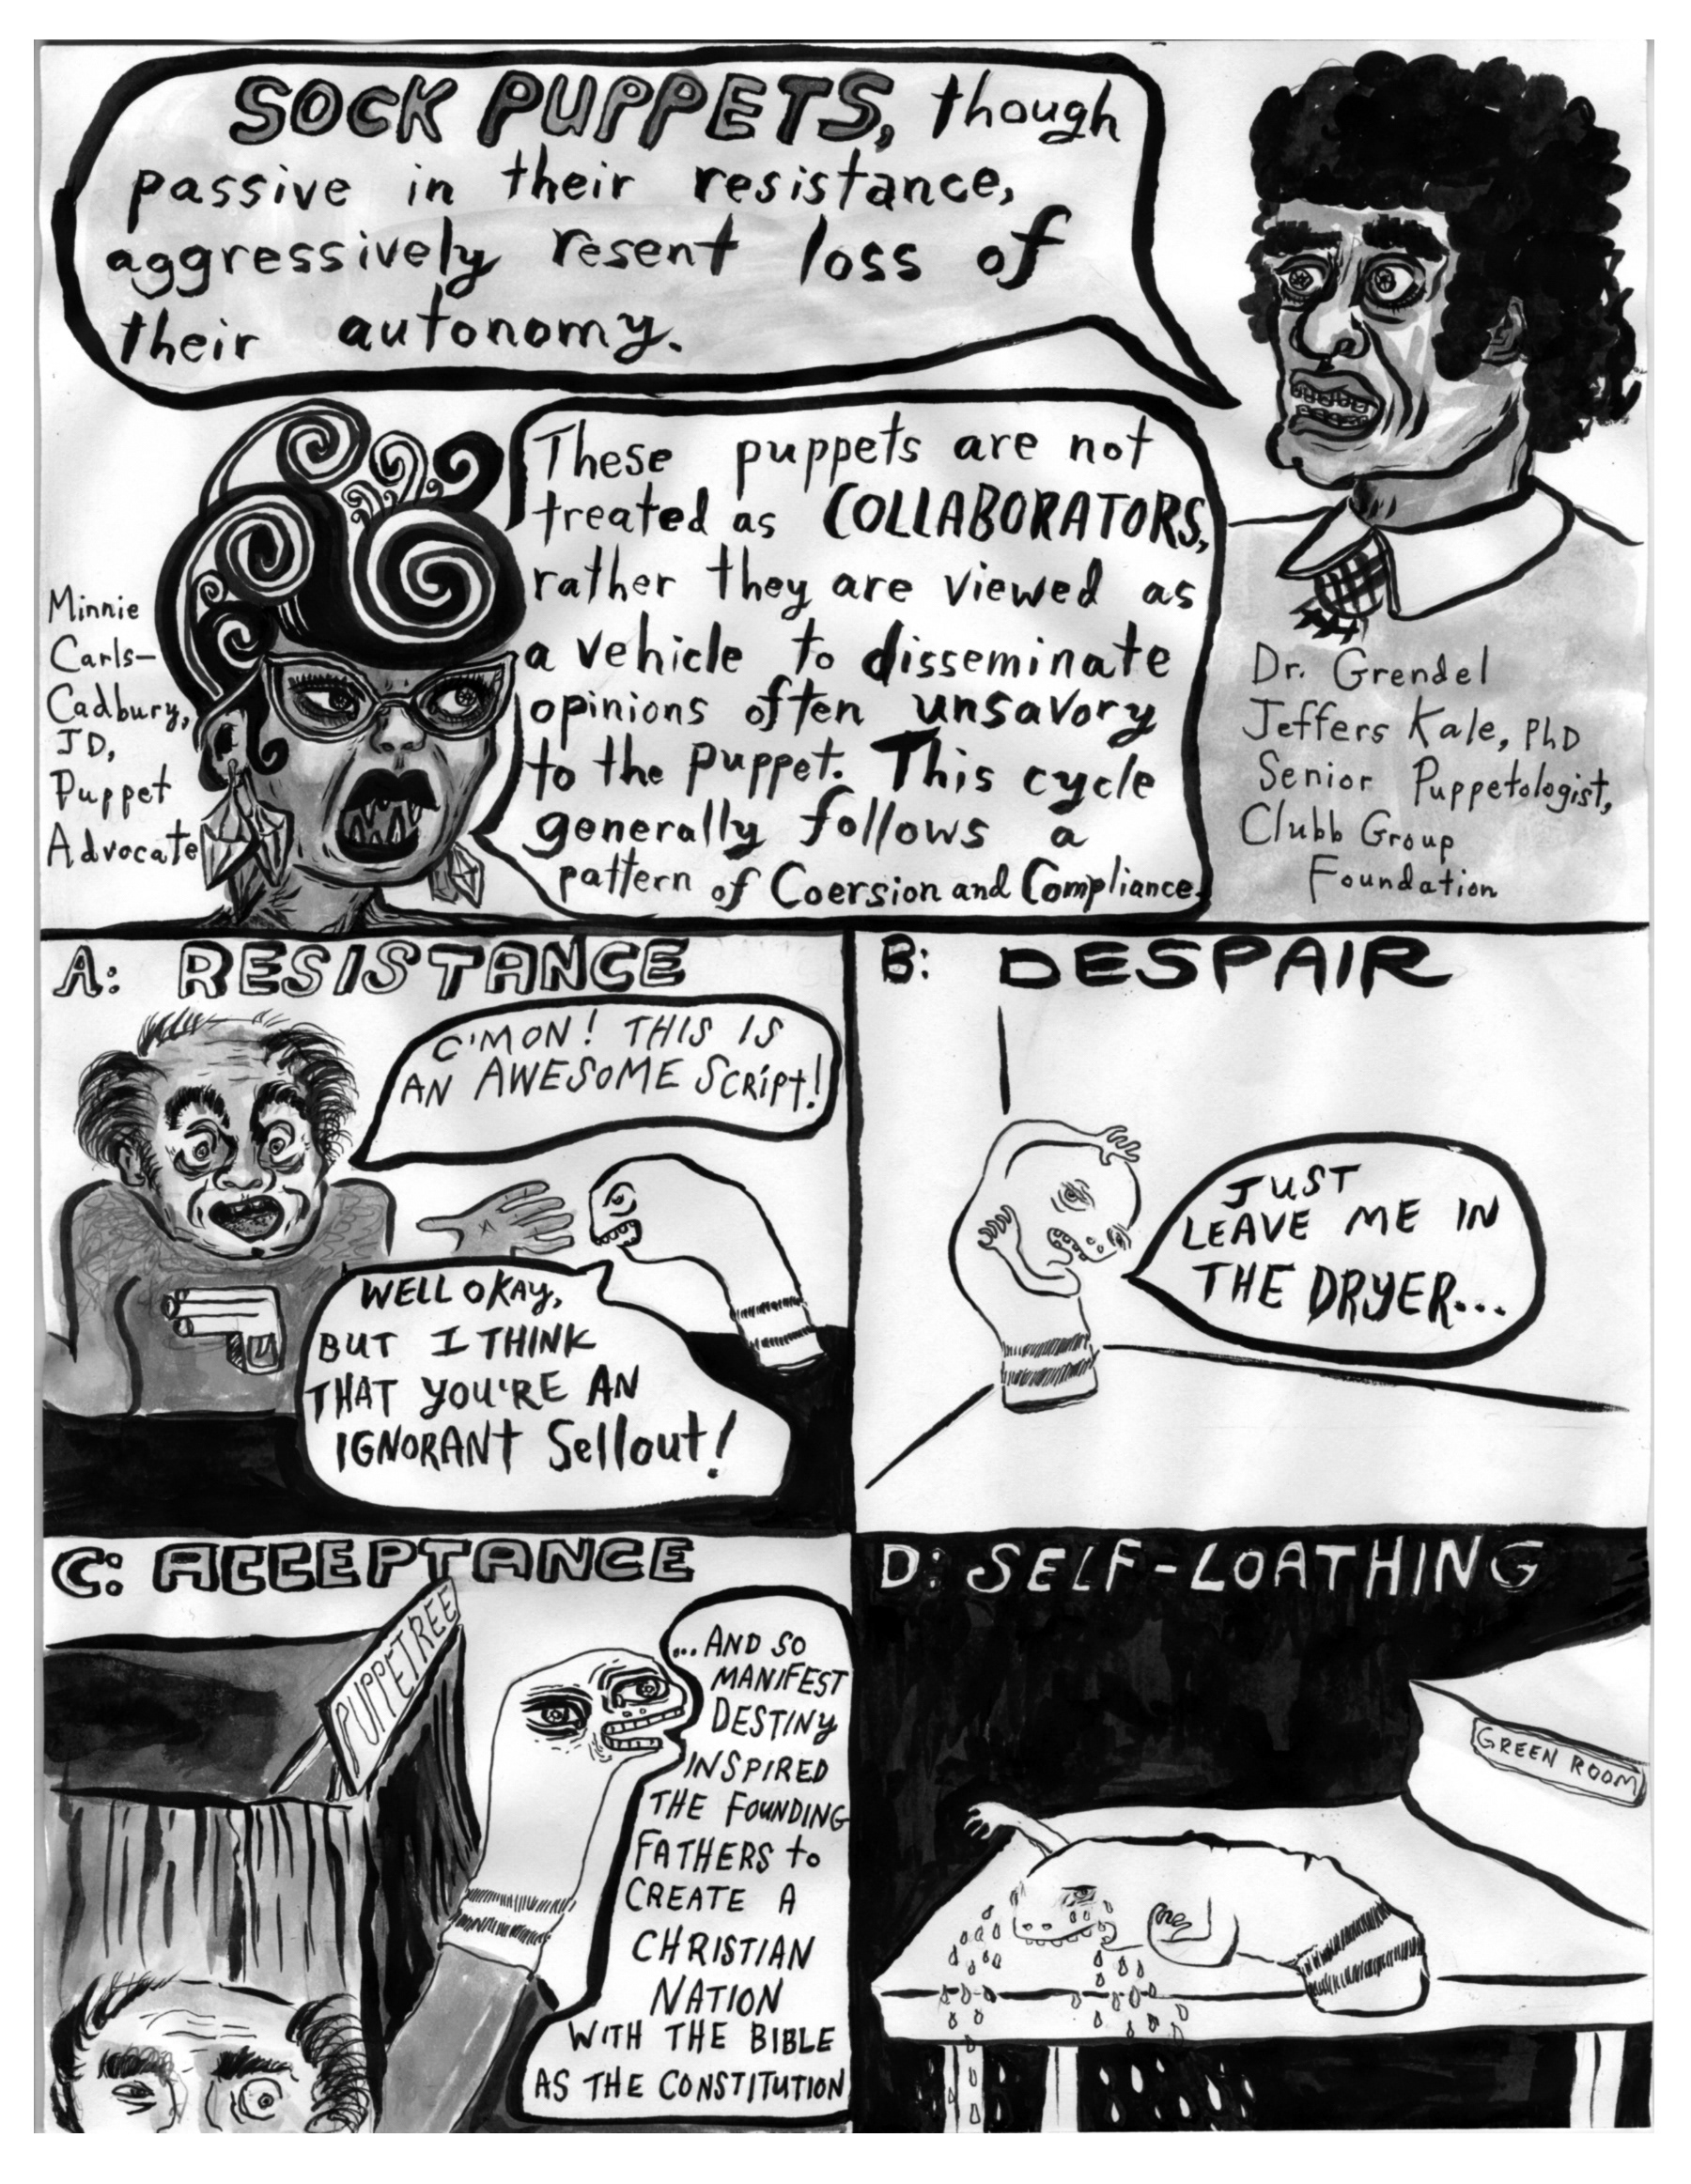 SOCK PUPPETS, though
passive in their resistance,
aggressively resent loss of
their autonomy.
Dr. Grendel
Jeffers Kale, PhD
Senior Puppetologist,
Clubb Group
Foundation
Minnie
Carls-
Cadbury,
JD,
Puppet
Advocate
These puppets are not
treated as COLLABORATORS,
rather they are viewed as
a vehicle to disseminate
opinions often unsavory
to the puppet. This cycle
generally follows a
pattern of Coersion and Compliance.
A: RESISTANCE
C'MON! THIS IS
AN AWESOME SCRipt!
WELL OKAY,
BUT I THINK
THAT YOU'RE AN
IGNORANt Sellout!
B: DESPAIR
JUST
LEAVE ME IN
THE DRYER...
C: ACCEPTANCE
PUPPETREE
...AND SO
MANIFEST
DESTINY
INSPIRED
THE FOUNDING
FATHERS to
CREATE A
CHRISTIAN
NATION
WITH THE BIBLE
AS THE CONSTITUTION
D: SELF-LOATHING
GREEN ROOM